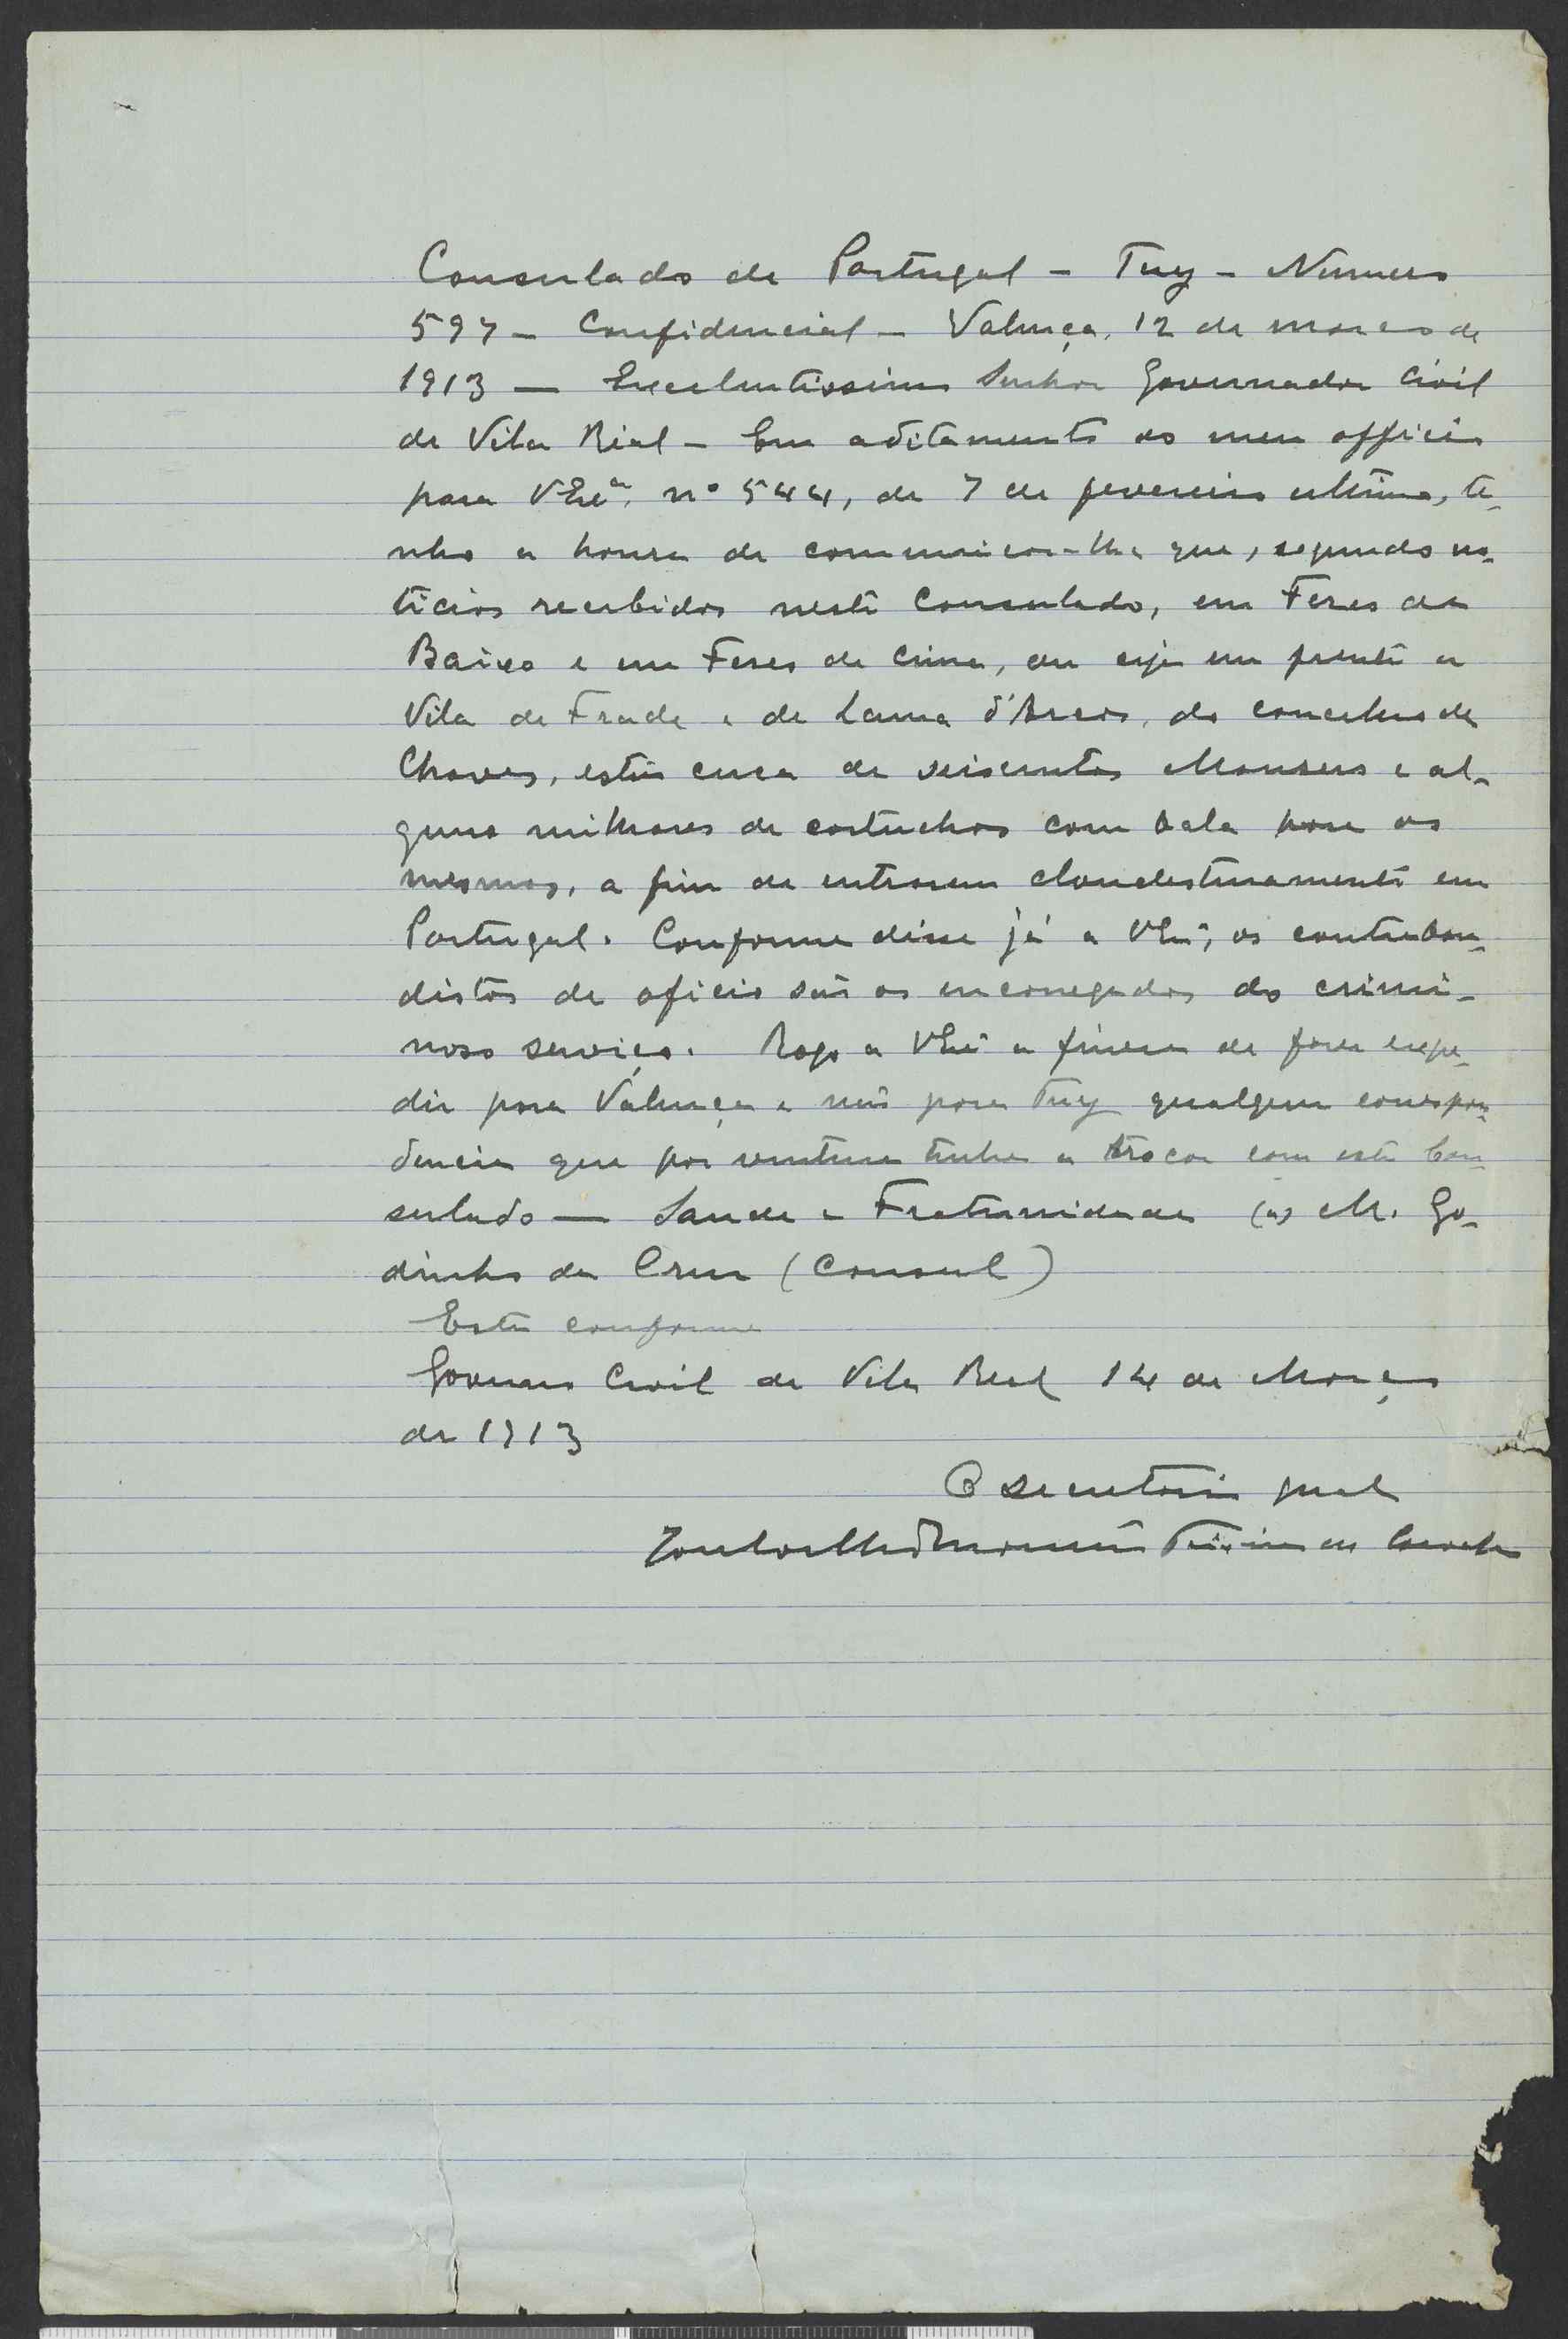 Consulado de Portugal - Tuy - Numero
597 - Confidencial - Valença, 12 de março de
1913 — Excelentissimo Senhor Governador Civil
de Vila Rial - Em aditamento ao meu officio
para VExcia nº 544, de 7 de fevereiro ultimo, te-
nho a honra de comunicar-lhe que, segundo no-
ticias recebidas neste Consulado, em Feres de
Baixo e em Feres de Cima, ou seja em frente a
Vila de Frade e de Lama d'Arcos, do concelho de
Chaves, estão cerca de seiscentas Mausers e al-
guns milhares de cartuchos com bala para as
mesmas, a fim de entrarem clandestinamente em
Portugal. Conforme disse já a VExcia, os contraban-
distas de oficio são os encarregados do crimi-
noso serviço. Rogo a VExcia a fineza de fazer expe-
dir para Valença e não para Tuy qualquer correspon-
dencia que por ventura tenha a trocar com este Con-
sulado — Saude e Fraternidade (a) M. Go-
dinho da Cruz (Consul)
Está conforme
Governo Civil de Vila Real 14 de Março
de 1913
O secretario geral
Teixeira de